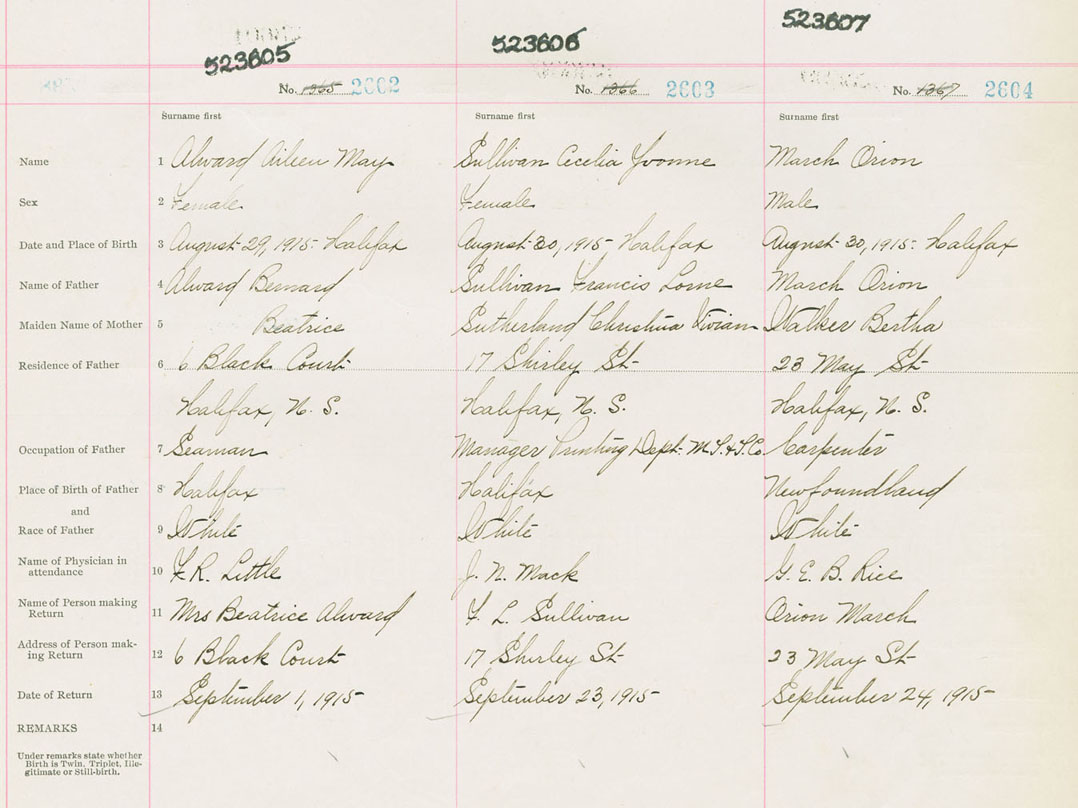 523605 523606 523607
No. 1365 2602 No. 1366 2603 No. 1367 2604
Surname first Surname first Surname first
Name 1 Alward Aileen May Sullivan Cecelia Yvonne March Orion
Sex 2 Female Female Male
Date and Place of Birth 3 August 29, 1915 - Halifax August 30, 1915 - Halifax August 30, 1915 - Halifax
Name of Father 4 Alward Bernard Sullivan Francis Lorne March Orion
Maiden Name of Mother 5 Beatrice Sutherland Christina Vivian Walker Bertha
Residence of Father 6 6 Black Court 17 Shirley St 23 May St
Halifax, N. S. Halifax, N. S. Halifax, N. S.
Occupation of Father 7 Seaman Manager Printing Dept. M. T. & T. Co. Carpenter
Place of Birth of Father 8 Halifax Halifax Newfoundland
and
Race of Father 9 White White White
Name of Physician in
attendance 10 F. R. Little J. N. Mack G. E. B. Rice
Name of Person making
Return 11 Mrs Beatrice Alward F. L. Sullivan Orion March
Address of Person mak-
ing Return 12 6 Black Court 17 Shirley St 23 May St
Date of Return 13 September 1, 1915 September 23, 1915 September 24, 1915
REMARKS 14
Under remarks state whether
Birth is Twin, Triplet, Ille-
gitimate or Still-birth.